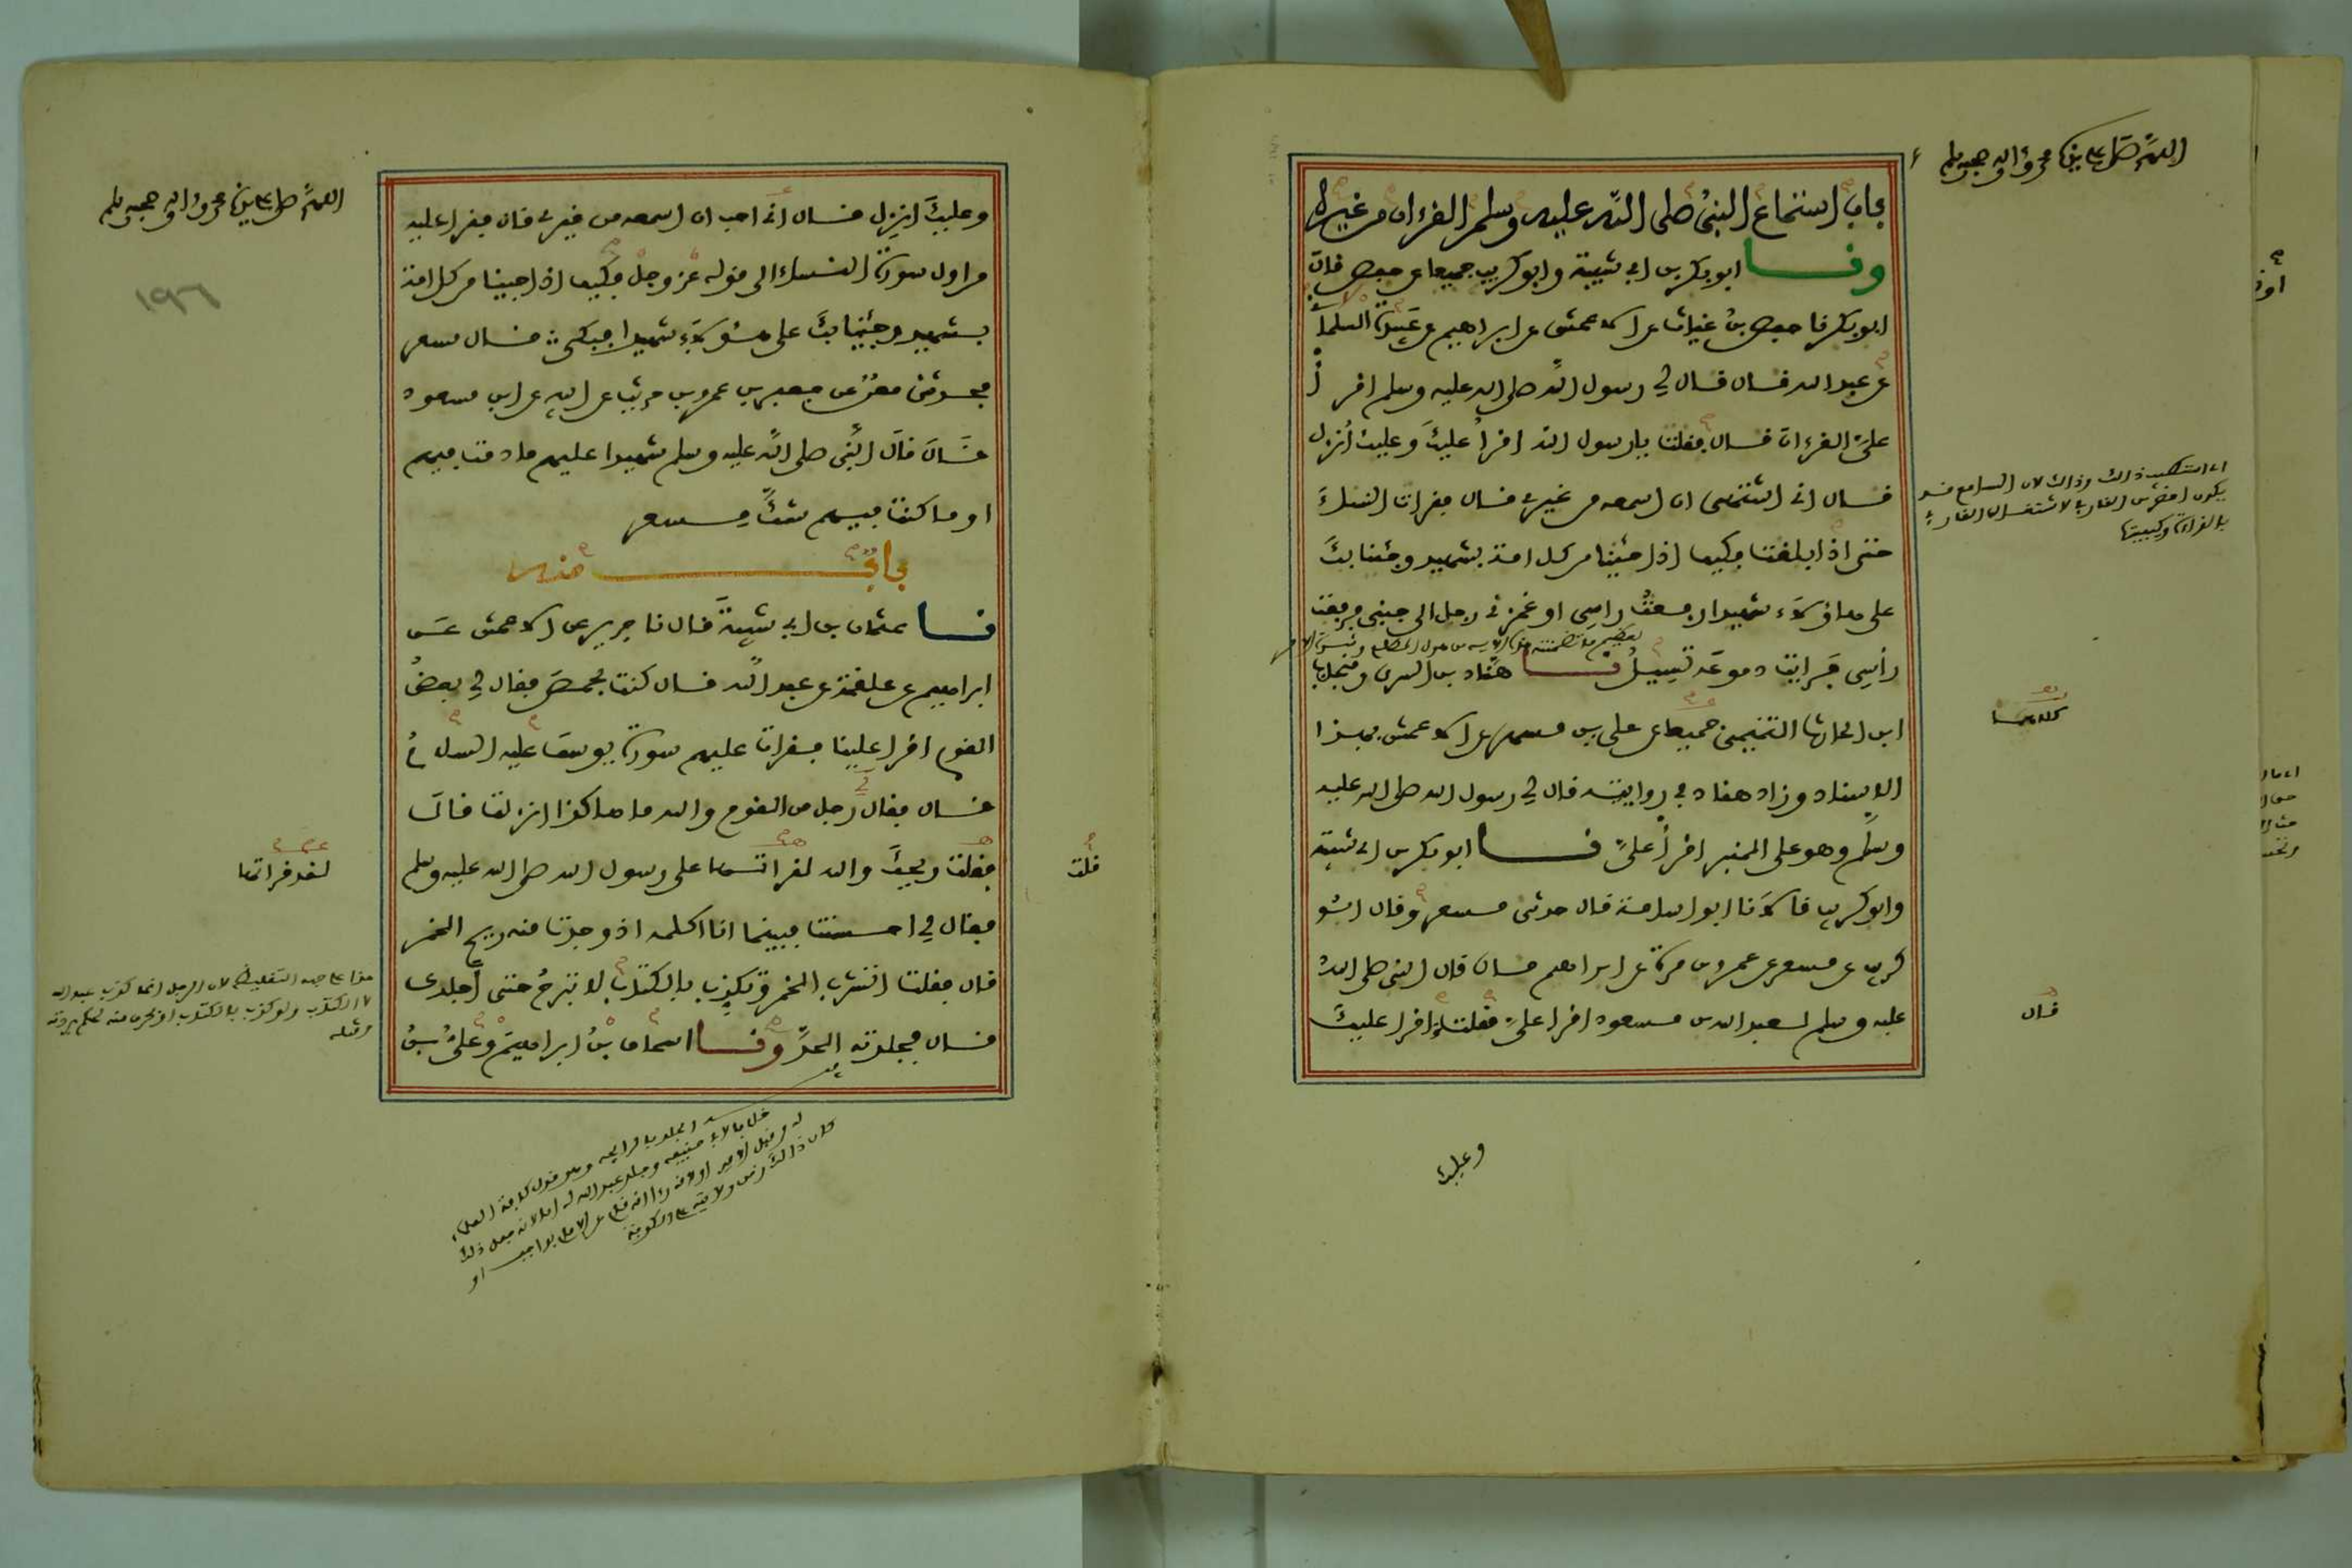 اللهم صل على سيدنا محمد وءاله وصحبه وسلم
باب استماع النبي صلى الله عليه وسلم القرءان من غيره
ونا ابو بكر بن ابي شيبة وابو كريب جميعا عن حفص قال
ابو بكر نا حفص بن غياث عن الاعمش عن ابراهيم عن عبيدة السلماني
عن عبد الله قال قال لي رسول الله صلى الله عليه وسلم اقرأ
علي القرءان قال فقلت يا رسول الله اقرأ عليك وعليك أنزل
قال اني اشتهى ان اسمعه من غيري قال فقرات النساء
حتى اذا بلغت فكيف اذا جئنا من كل امة بشهيد وجئنا بك
على هاؤلاء شهيدا رفعت راسي او غمزني رجل الى جنبي فرفعت
رأسي فرايت دموعه تسيل نا هناد بن السري ومنجاب
ابن الحارث التميمي جميعا عن علي بن مسهر عن الاعمش بهذا
الاسناد وزاد هناد في روايته قال لي رسول الله صلى الله عليه
وسلم وهو على المنبر اقرأ علي نا ابو بكر بن ابي شيبة
وابو كريب قالا نا ابو اسامة قال حدثني مسعر وقال ابو
كريب عن مسعر عن عمرو بن مرة عن ابراهيم قال قال النبي صلى الله
عليه وسلم لعبد الله بن مسعود اقرا علي فقلت اقرا عليك
اي استكبت ذلك وذلك لان السامع قد
يكون احضر من القارئ لاشتغال القارئ
بالقراءة وكيفيتها
قال
وعليك
اللهم صل على سيدنا محمد وءاله وصحبه وسلم
١٩٦
وعليك انزل قال اني احب ان اسمعه من غيري قال فقرا عليه
من اول سورة النساء الى قوله عز وجل فكيف اذا جئنا من كل امة
بشهيد وجئنا بك على هؤلاء شهيدا فبكى قال مسعر
فحدثني معن عن جعفر بن عمرو بن حريث عن ابيه عن ابن مسعود
قال قال النبي صلى الله عليه وسلم شهيدا عليهم ما دمت فيهم
او ما كنت فيهم شك مسعر
باب منه
نا عثمان بن ابي شيبة قال نا جرير عن الاعمش عن
ابراهيم عن علقمة عن عبد الله قال كنت بحمص فقال لي بعض
القوم اقرا علينا فقرات عليهم سورة يوسف عليه السلام
قال فقال رجل من القوم والله ما هاكذا انزلت قال
فقلت ويحك والله لقراتها على رسول الله صلى الله عليه وسلم
فقال لي احسنت فبينما انا اكلمه اذ وجدت منه ريح الخمر
قال فقلت اتشرب الخمر وتكذب بالكتاب لا تبرح حتى اجلدك
قال فجلدته الحد ونا اسحاق بن ابراهيم وعلي بن
قلت
لقد قراتها
هذا على جهة التغليظ لان الرجل انما كذب عبد الله
لا الكتاب ولو كذب بالكتاب او بحرف منه لحكم بردته
وقتله